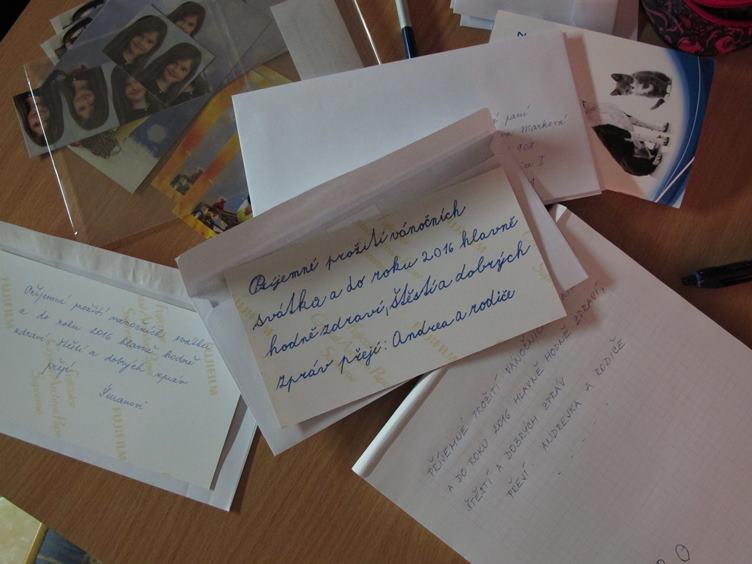 paní
Marková
908
I
Příjemné prožití vánočních
svátků a do roku 2016 hlavně
hodně zdraví, štěstí a dobrých
zpráv přejí: Andrea a rodiče
Příjemné prožití vánočních svátků
a do roku 2016 hlavně hodně
zdraví, štěstí a dobrých zpráv
přejí
PŘÍJEMNÉ PROŽITÍ VÁNOČNÍCH
A DO ROKU 2016 HLAVNĚ HODNĚ ZDRAVÍ,
ŠTĚSTÍ A DOBRÝCH ZPRÁV
PŘEJÍ ANDREJKA A RODIČE
FUJIFILM
FUJIFILM
FUJIFILM